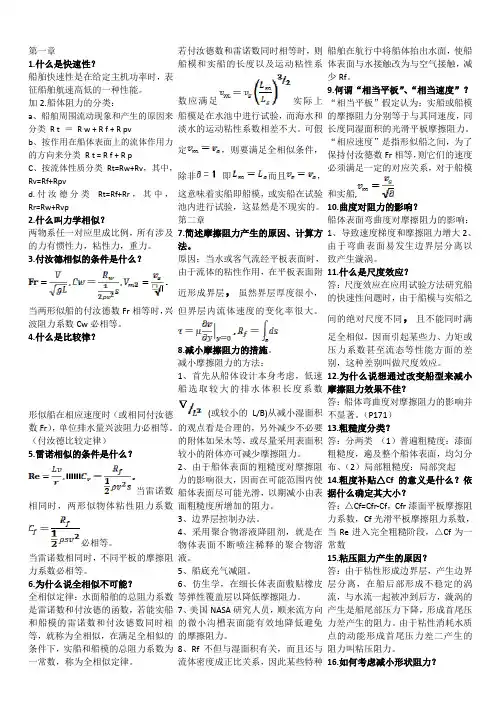 第一章
1.什么是快速性?
船舶快速性是在给定主机功率时，表
征船舶航速高低的一种性能。
加2.船体阻力的分类:
a、船舶周围流动现象和产生的原因来
分类 R t = R w + R f + R pv
b、按作用在船体表面上的流体作用力
的方向来分类 R t = R f + R p
C、按流体性质分类 Rt=Rw+Rv，其中，
Rv=Rf+Rpv
d.付汝德分类 Rt=Rf+Rr，其中，
Rr=Rw+Rpv
2.什么叫力学相似?
两物系任一对应里成比例，所有涉及
的力有惯性力，粘性力，重力。
3.付汝德相似的条件是什么?
当两形似船的付汝德数 Fr 相等时,兴
波阻力系数 Cw 必相等。
4.什么是比较锥?
形似船在相应速度时（或相同付汝德
数 Fr），单位排水量兴波阻力必相等。
（付汝德比较定律）
5.雷诺相似的条件是什么?
当雷诺数
相同时，两形似物体粘性阻力系数
必相等。
当雷诺数相同时，不同平板的摩擦阻
力系数必相等。
6.为什么说全相似不可能?
全相似定律：水面船舶的总阻力系数
是雷诺数和付汝德的函数，若能实船
和船模的雷诺数和付汝德数同时相
等，就称为全相似，在满足全相似的
条件下，实船和船模的总阻力系数为
一常数，称为全相似定律。
若付汝德数和雷诺数同时相等时，则
船模和实船的长度以及运动粘性系
数应满足 实际上
船模是在水池中进行试验，而海水和
淡水的运动粘性系数相差不大。可假
定 ，则要满足全相似条件，
除非 即 而且 ，
这意味着实船即船模，或实船在试验
池内进行试验，这显然是不现实的。
第二章
7.简述摩擦阻力产生的原因、计算方
法。
原因：当水或客气流经平板表面时，
由于流体的粘性作用，在平板表面附
近形成界层，虽然界层厚度很小，
但界层内流体速度的变化率很大。
8.减小摩擦阻力的措施。
减小摩擦阻力的方法:
1、首先从船体设计本身考虑。低速
船选取较大的排水体积长度系数
(或较小的 L/B)从减小湿面积
的观点看是合理的，另外减少不必要
的附体如呆木等，或尽量采用表面积
较小的附体亦可减少摩擦阻力。
2、由于船体表面的粗糙度对摩擦阻
力的影响很大，因而在可能范围内使
船体表面尽可能光滑，以期减小由表
面粗糙度所增加的阻力。
3、边界层控制办法。
4、采用聚合物溶液降阻剂，就是在
物体表面不断喷注稀释的聚合物溶
液。
5、船底充气减阻。
6、仿生学，在细长体表面敷贴橡皮
等弹性覆盖层以降低摩擦阻力。
7、美国 NASA 研究人员，顺来流方向
的做小沟槽表面能有效地降低避免
的摩擦阻力。
8、Rf 不但与湿面积有关，而且还与
流体密度成正比关系，因此某些特种
船舶在航行中将船体抬出水面，使船
体表面与水接触改为与空气接触，减
少 Rf。
9.何谓“相当平板”、“相当速度”？
“相当平板”假定认为：实船或船模
的摩擦阻力分别等于与其同速度，同
长度同湿面积的光滑平板摩擦阻力。
“相应速度”是指形似船之间，为了
保持付汝德数 Fr 相等,则它们的速度
必须满足一定的对应关系，对于船模
和实船,
10.曲度对阻力的影响?
船体表面弯曲度对摩擦阻力的影响:
1、导致速度梯度和摩擦阻力增大 2、
由于弯曲表面易发生边界层分离以
致产生漩涡。
11.什么是尺度效应?
答：尺度效应在应用试验方法研究船
的快速性问题时，由于船模与实船之
间的绝对尺度不同，且不能同时满
足全相似。因而引起某些力、力矩或
压力系数甚至流态等性能方面的差
别，这种差别叫做尺度效应。
12.为什么说想通过改变船型来减小
摩擦阻力效果不佳?
答：船体弯曲度对摩擦阻力的影响并
不显著。（P171）
13.粗糙度分类?
答：分两类 （1）普遍粗糙度：漆面
粗糙度，遍及整个船体表面，均匀分
布、（2）局部粗糙度：局部突起
14.粗度补贴△Cf 的意义是什么？依
据什么确定其大小?
答：△Cf=Cfr-Cf，Cfr 漆面平板摩擦阻
力系数，Cf 光滑平板摩擦阻力系数，
当 Re 进入完全粗糙阶段，△Cf 为一
常数
15.粘压阻力产生的原因?
答：由于粘性形成边界层，产生边界
层分离，在船后部形成不稳定的涡
流，与水流一起被冲到后方，漩涡的
产生是船尾部压力下降，形成首尾压
力差产生的阻力。由于粘性消耗水质
点的动能形成首尾压力差二产生的
阻力叫粘压阻力。
16.如何考虑减小形状阻力?